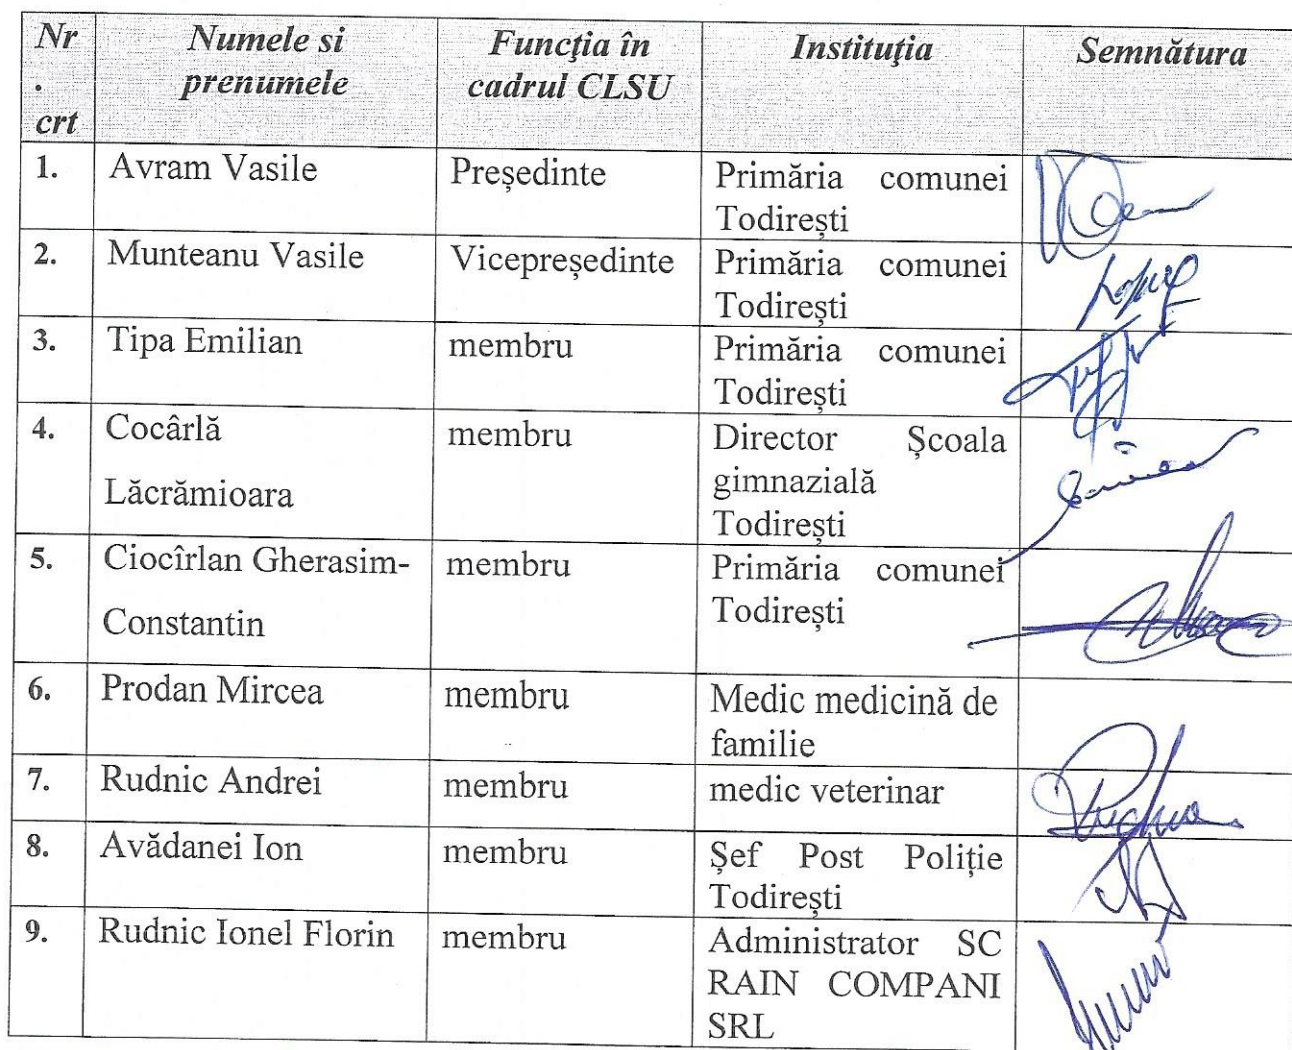 Nr
.
crt
Numele si
prenumele
Funcţia în
cadrul CLSU
Instituţia
Semnătura
1.
Avram Vasile
Președinte
Primăria comunei
Todirești
2.
Munteanu Vasile
Vicepreședinte
Primăria comunei
Todirești
3.
Tipa Emilian
membru
Primăria comunei
Todirești
4.
Cocârlă
Lăcrămioara
membru
Director Școala
gimnazială
Todirești
5.
Ciocîrlan Gherasim-
Constantin
membru
Primăria comunei
Todirești
6.
Prodan Mircea
membru
Medic medicină de
familie
7.
Rudnic Andrei
membru
medic veterinar
8.
Avădanei Ion
membru
Șef Post Poliție
Todirești
9.
Rudnic Ionel Florin
membru
Administrator SC
RAIN COMPANI
SRL